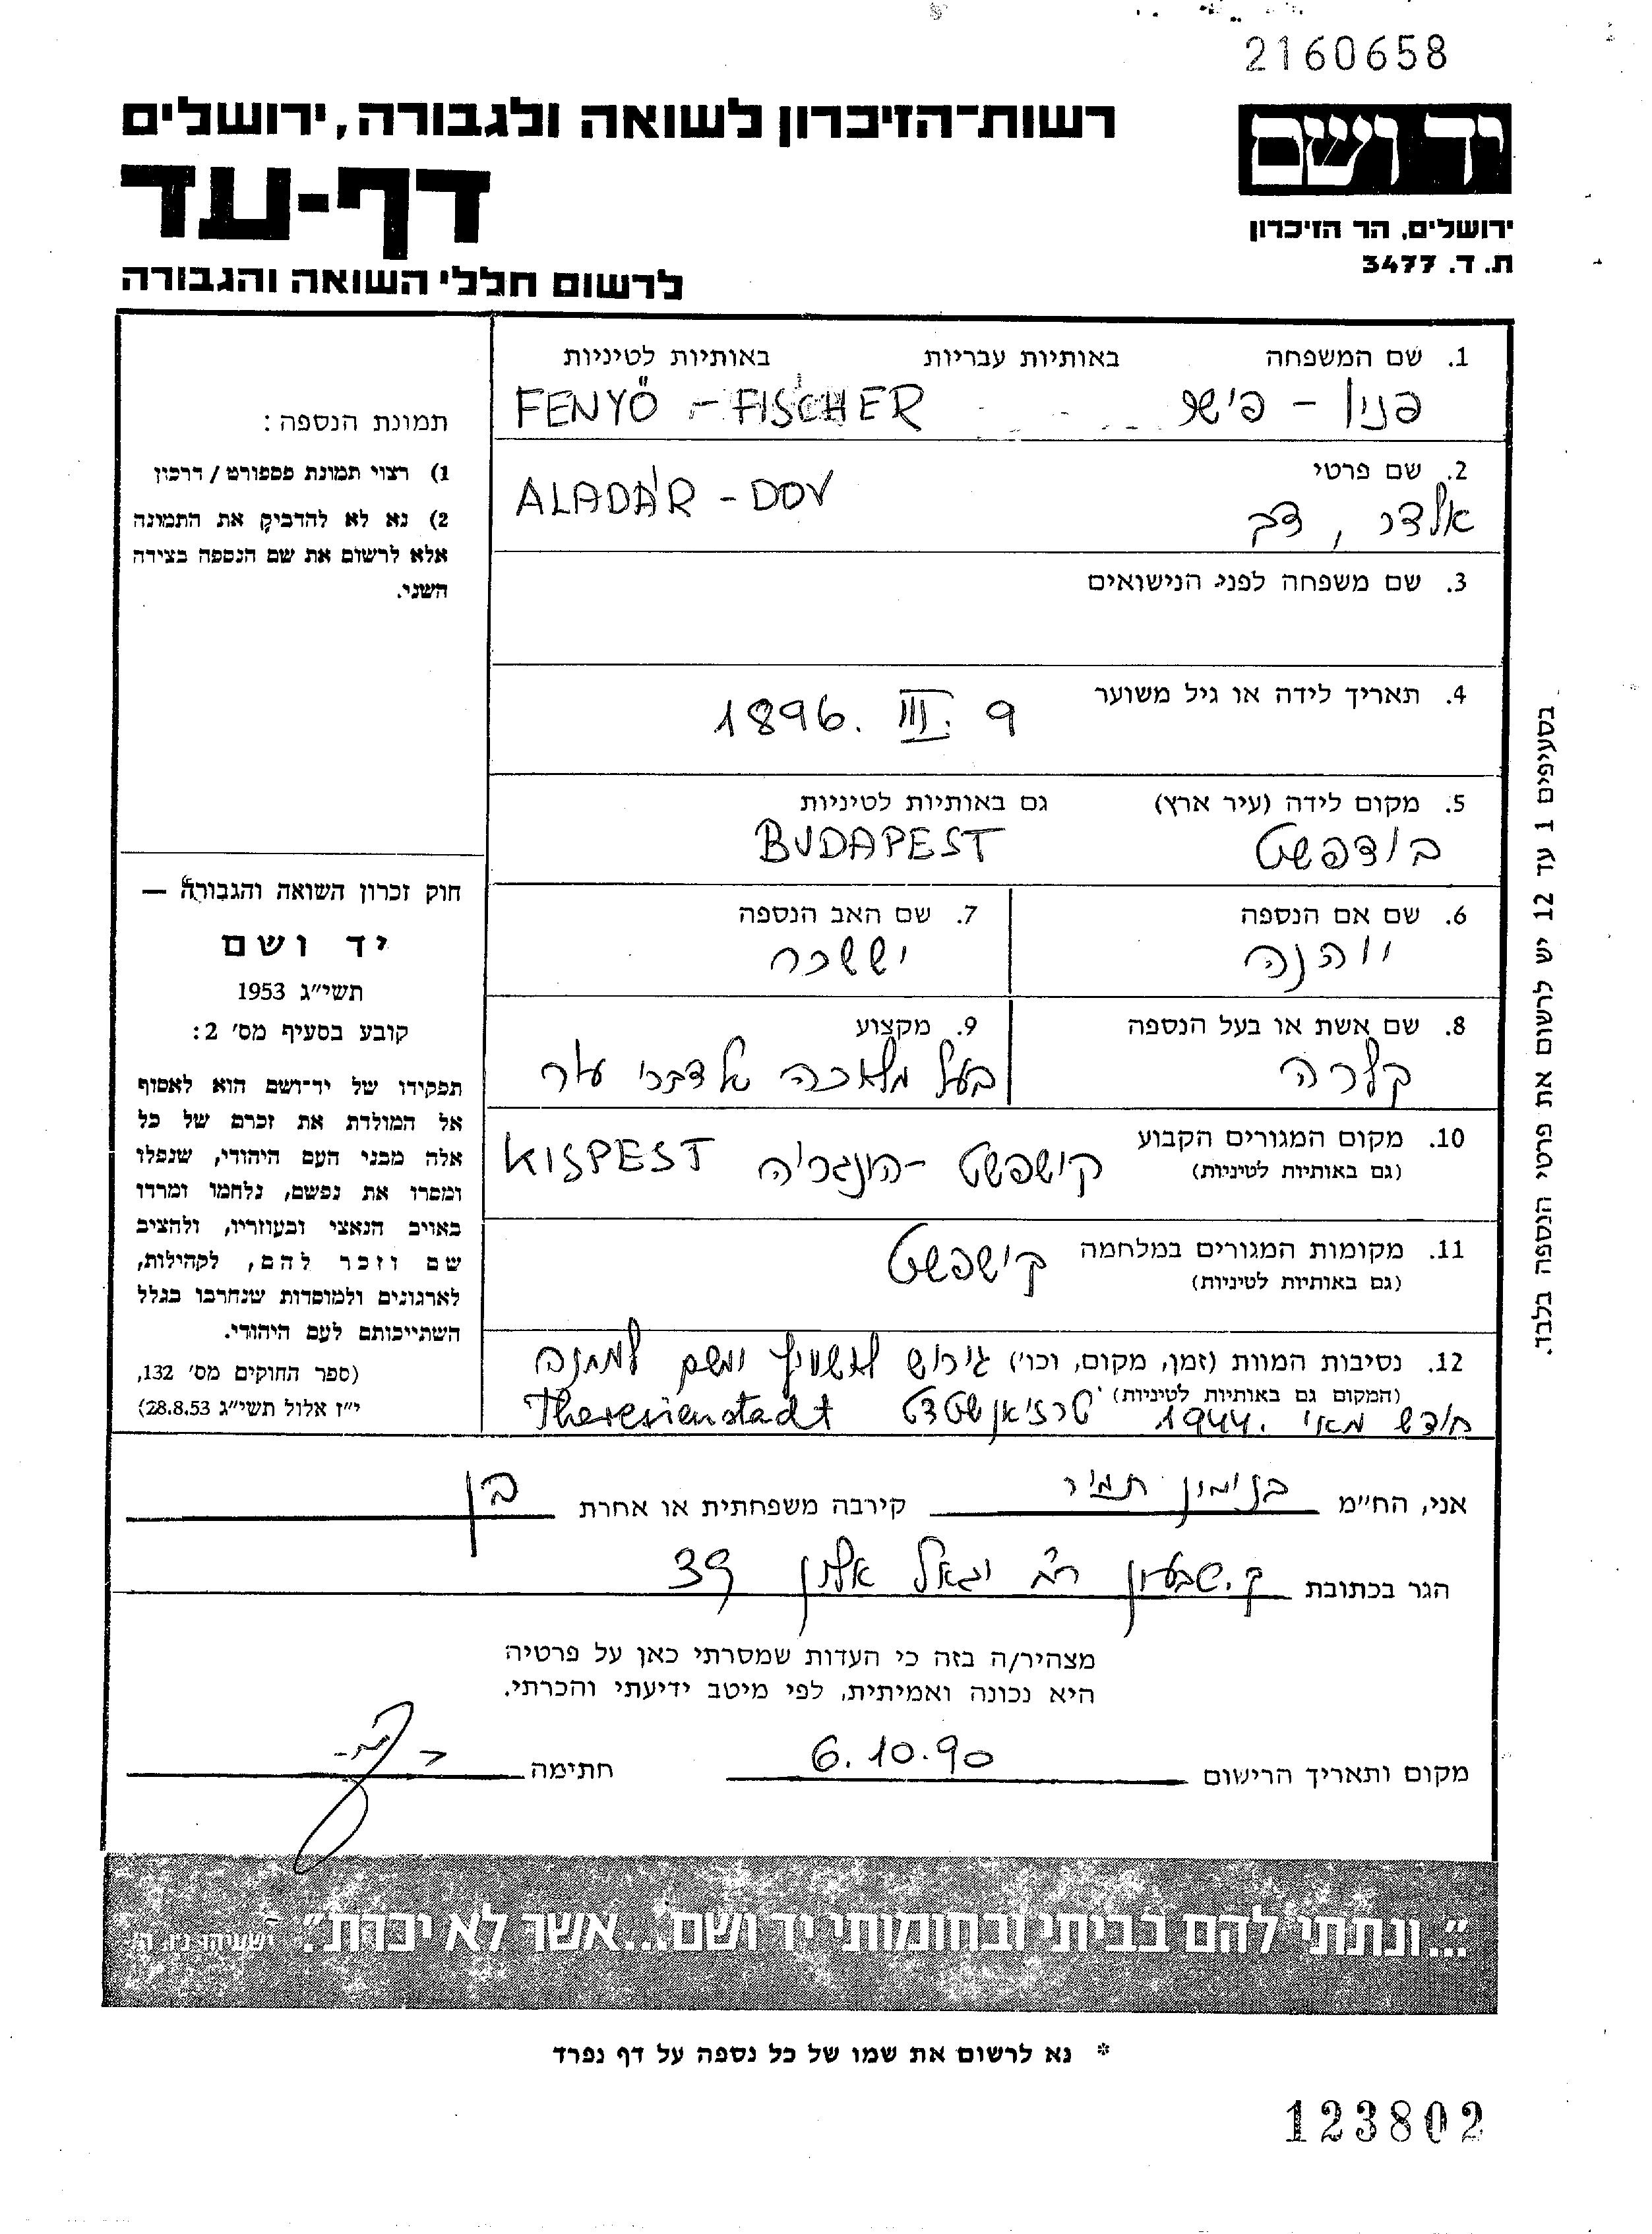 2160658
יד ושם
רשות־הזיכרון לשואה ולגבורה, ירושלים
דף-עד
ירושלים, הר הזיכרון
ת. ד. 3477
לרשום חללי השואה והגבורה
1. שם המשפחה באותיות עבריות באותיות לטיניות
פניו - פישר FENYŐ - FISCHER
2. שם פרטי
אלדר, דב ALADÁR - DOV
3. שם משפחה לפני הנישואים
4. תאריך לידה או גיל משוער
1896. III. 9
5. מקום לידה (עיר ארץ) גם באותיות לטיניות
בודפשט BUDAPEST
6. שם אם הנספה
יוהנה
7. שם האב הנספה
יששכר
8. שם אשת או בעל הנספה
קלרה
9. מקצוע
בעל מלאכה לדברי עור
10. מקום המגורים הקבוע
(גם באותיות לטיניות)
קישפשט - הונגריה KISPEST
11. מקומות המגורים במלחמה
(גם באותיות לטיניות)
קישפשט
12. נסיבות המוות (זמן, מקום, וכו') גירוש לאושוויץ ומשם למחנה
(המקום גם באותיות לטיניות)
חודש מאי 1944. טרזיאנשטדט Theresienstadt
תמונת הנספה:
1) רצוי תמונת פספורט / דרכון
2) נא לא להדביק את התמונה
אלא לרשום את שם הנספה בצידה
השני.
חוק זכרון השואה והגבורה —
יד ושם
תשי״ג 1953
קובע בסעיף מס׳ 2:
תפקידו של יד־ושם הוא לאסוף
אל המולדת את זכרם של כל
אלה מבני העם היהודי, שנפלו
ומסרו את נפשם, נלחמו ומרדו
באויב הנאצי ובעוזריו, ולהציב
שם וזכר להם, לקהילות,
לארגונים ולמוסדות שנחרבו בגלל
השתייכותם לעם היהודי.
(ספר החוקים מס׳ 132,
י״ז אלול תשי״ג 28.8.53)
בסעיפים 1 עד 12 יש לרשום את פרטי הנספה בלבד.
אני, החי״מ בנימין תמיר קירבה משפחתית או אחרת בן
הגר בכתובת ק. טבעון רח' יגאל אלון 39
מצהיר/ה בזה כי העדות שמסרתי כאן על פרטיה
היא נכונה ואמיתית, לפי מיטב ידיעתי והכרתי.
מקום ותאריך הרישום 6.10.90 חתימה
"...ונתתי להם בביתי ובחומותי יד ושם...אשר לא יכרת". ישעיהו נ״ו, ה׳
* נא לרשום את שמו של כל נספה על דף נפרד
123802